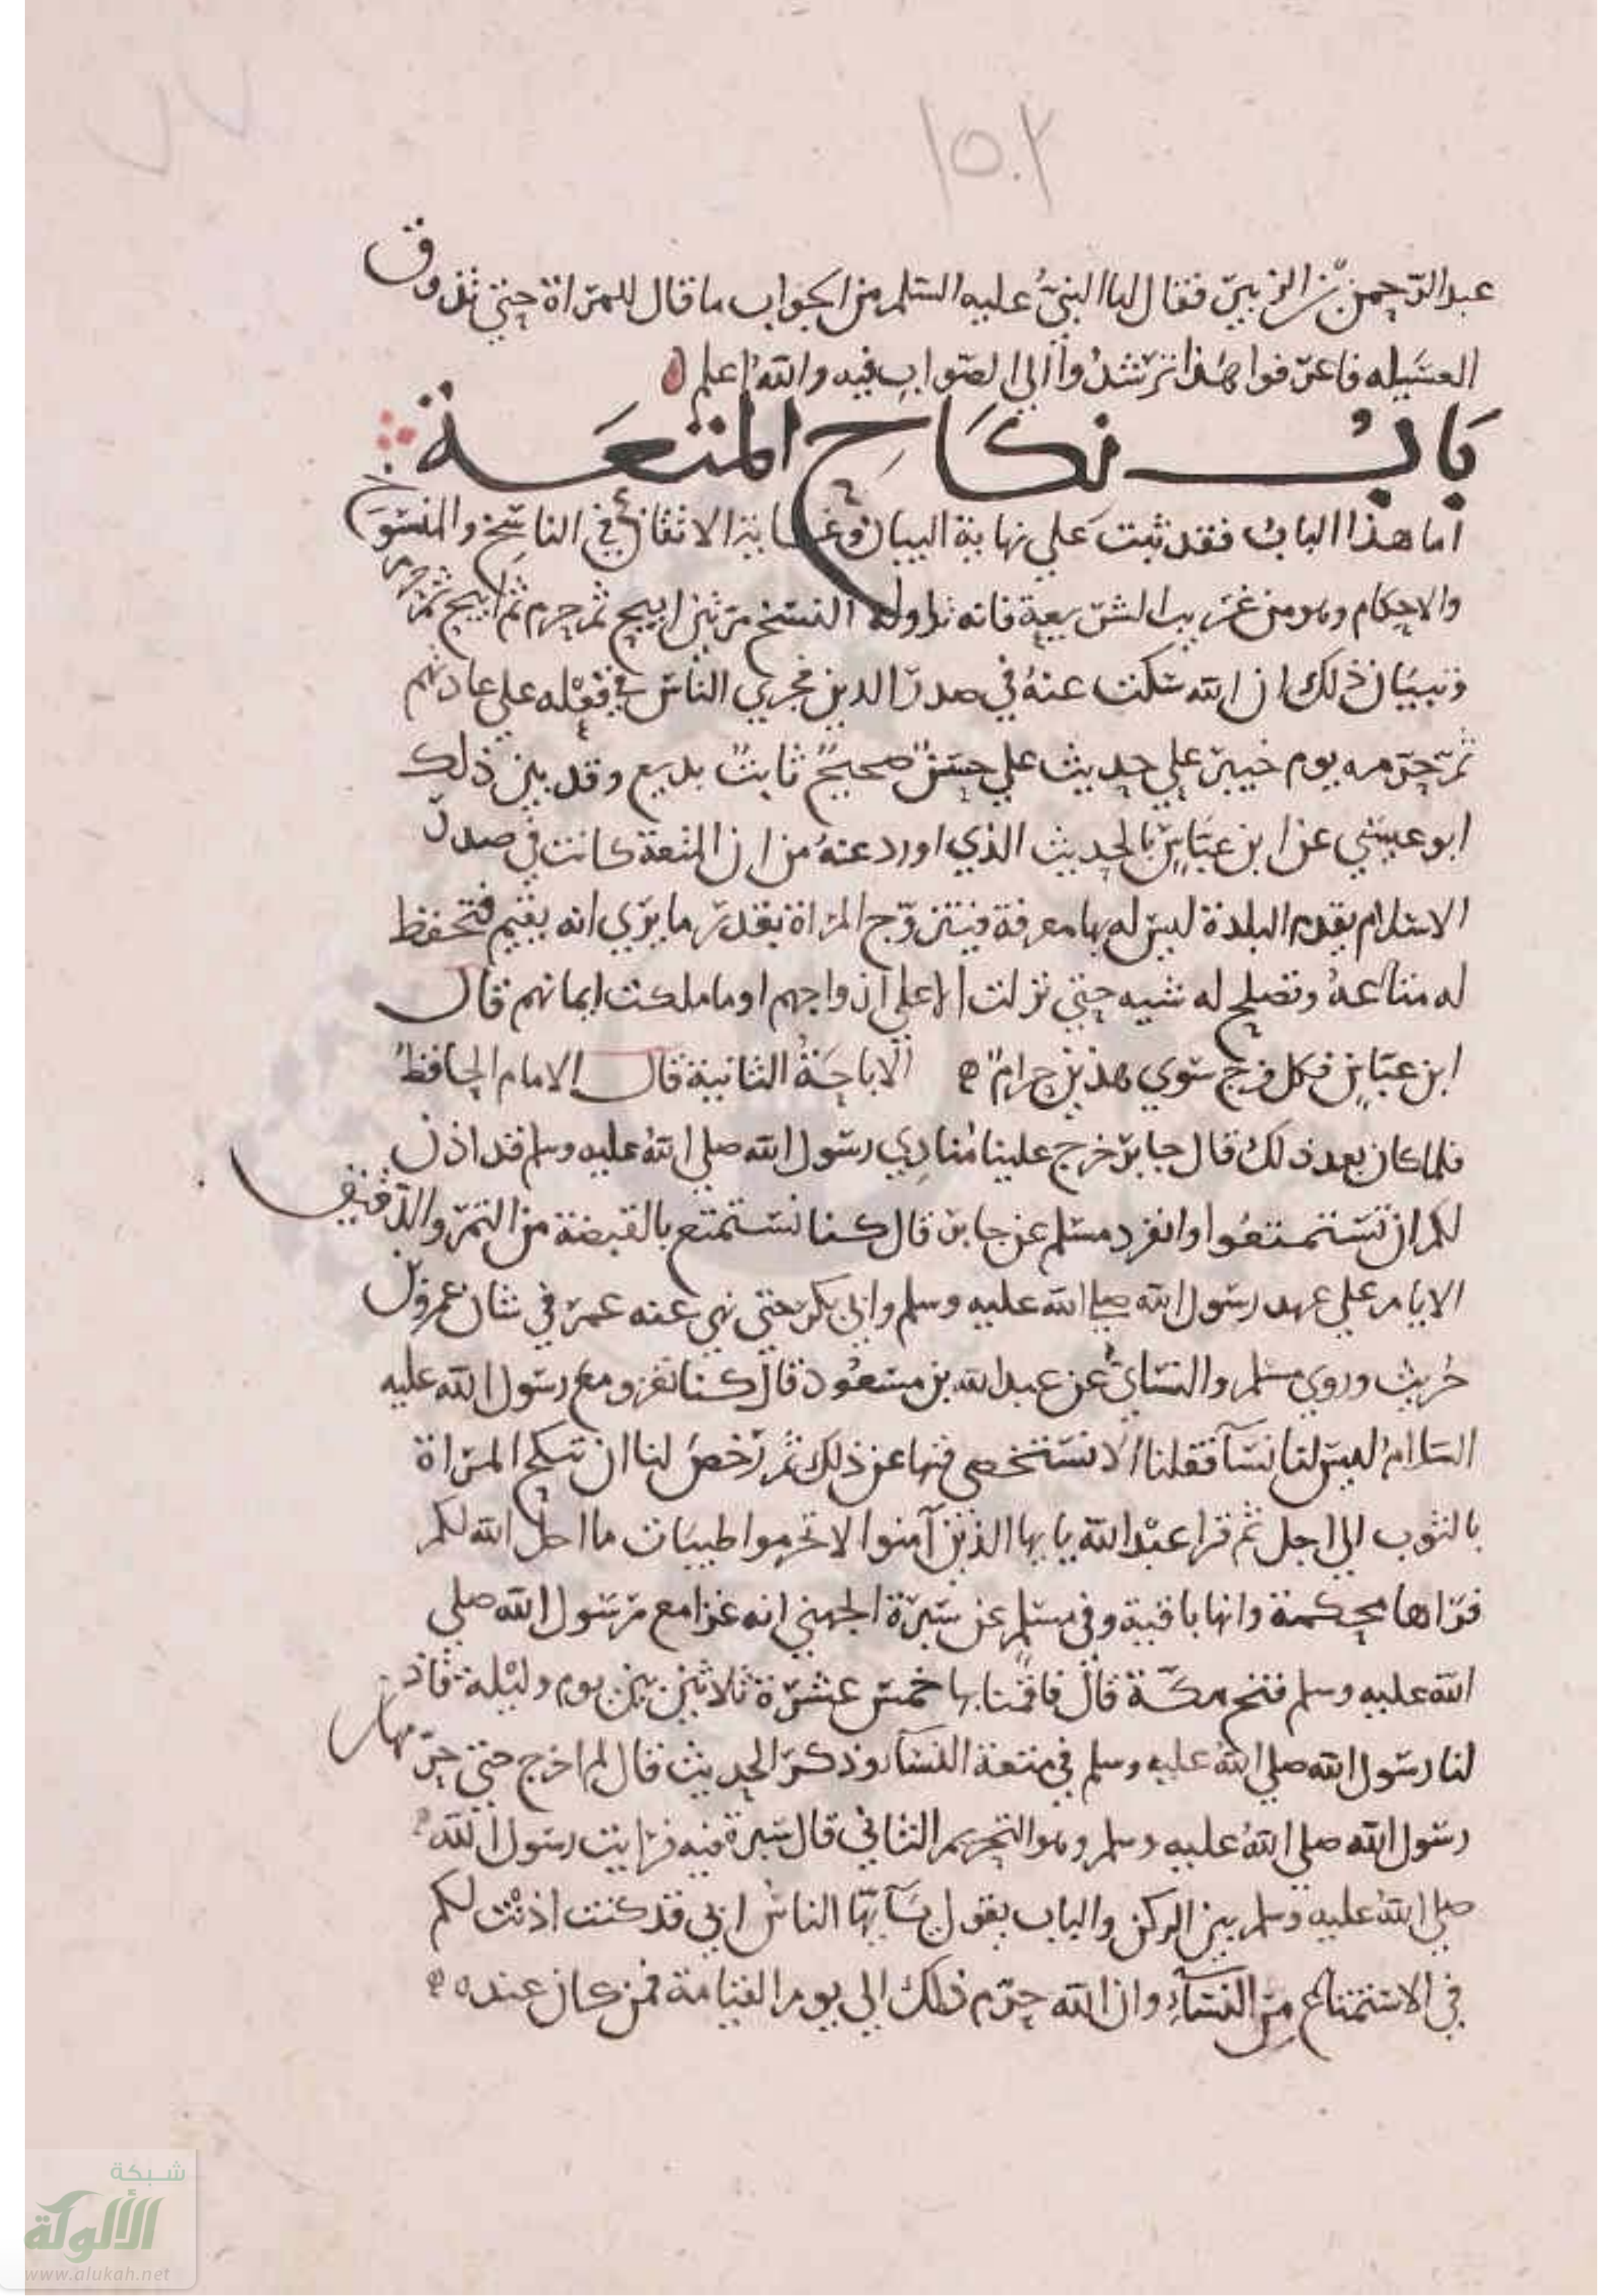 ١٥٠٢
عبد الرحمن بن الزبير فقال لها النبي عليه السلم من الجواب ما قال للمراة حتى تذوق
العسيله فاعرفوا هذا ترشدوا الى الصواب فيه والله اعلم
باب نكاح المتعة
اما هذا الباب فقد ثبت على نهاية البيان وغاية الاتقان في الناسخ والمنسوخ
والاحكام وهو من غريب الشريعة فانه تداوله النسخ مرتين ابيح ثم حرم ثم ابيح ثم حرم
وتبيان ذلك ان الله سكت عنه في صدر الدين فجرى الناس في فعله على عادتهم
ثم حرمه يوم خيبر على حديث علي حسن صحيح ثابت بديع وقد بين ذلك
ابو عيسى عن ابن عباس بالحديث الذي اورد عنه من ان المتعة كانت في صدر
الاسلام يقدم البلدة ليس له بها معرفة فيتزوج المراة بقدر ما يرى انه يقيم فتحفظ
له متاعه وتصلح له شيه حتى نزلت الا على ازواجهم او ما ملكت ايمانهم قال
ابن عباس فكل فرج سوى هذين حرام ه الاباحة الثانية قال الامام الحافظ
فلما كان بعد ذلك قال جابر خرج علينا منادي رسول الله صلى الله عليه وسلم قد اذن
لكم ان تستمتعوا وانفرد مسلم عن جابر قال كنا نستمتع بالقبضة من التمر والدقيق
الايام على عهد رسول الله صلى الله عليه وسلم وابي بكر حتى نهى عنه عمر في شان عمرو بن
حريث وروى مسلم والنسائي عن عبد الله بن مسعود قال كنا نغزو مع رسول الله عليه
السلام ليس لنا نسآ فقلنا الا نستخصي فنهنا عن ذلك ثم رخص لنا ان ننكح المراة
بالثوب الى اجل ثم قرا عبد الله يايها الذين آمنوا لا تحرموا طيبات ما احل الله لكم
فراها محكمة وانها باقية وفي مسلم عن سبرة الجهني انه غزا مع رسول الله صلى
الله عليه وسلم فتح مكة قال فاقمنا بها خمس عشرة ثلاثين بين يوم وليلة فاذن
لنا رسول الله صلى الله عليه وسلم في متعة النسآ وذكر الحديث قال لم اخرج حتى حرمها
رسول الله صلى الله عليه وسلم وهو التحريم الثاني قال سبرة فيه فرايت رسول الله
صلى الله عليه وسلم بين الركن والباب يقول يآيها الناس اني قد كنت اذنت لكم
في الاستمتاع من النسآء وان الله حرم ذلك الى يوم القيامة فمن كان عنده ه
شبكة
الألوكة
www.alukah.net